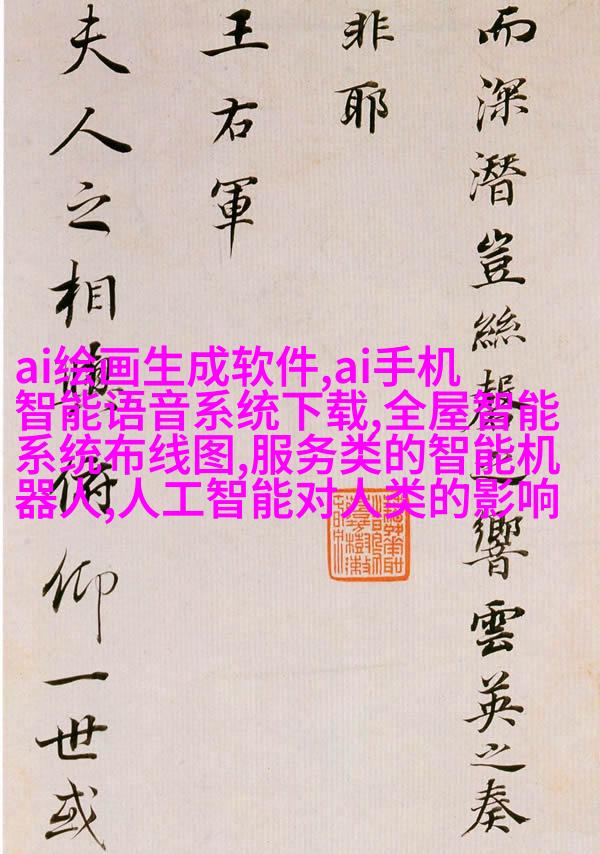 而深潛豈絲磬之響雲英之奏
非耶
王右軍
夫人之相與俯仰一世或
ai绘画生成软件,ai手机
智能语音系统下载,全屋智能
系统布线图,服务类的智能机
器人,人工智能对人类的影响